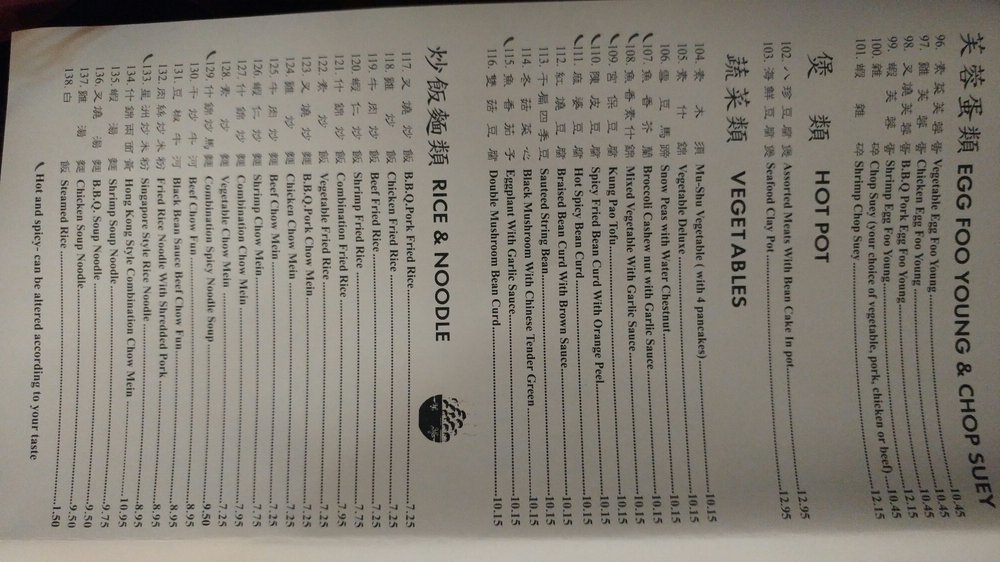 芙蓉蛋類 EGG FOO YOUNG & CHOP SUEY
96. 素菜芙蓉蛋 Vegetable Egg Foo Young 10.45
97. 雞芙蓉蛋 Chicken Egg Foo Young 10.45
98. 叉燒芙蓉蛋 B.B.Q Pork Egg Foo Young 10.45
99. 蝦芙蓉蛋 Shrimp Egg Foo Young 12.15
100. 雜碎 Chop Suey (your choice of vegetable, pork, chicken or beef) 10.45
101. 蝦雜碎 Shrimp Chop Suey 12.15
煲類 HOT POT
102. 八珍豆腐煲 Assorted Meats With Bean Cake In pot 12.95
103. 海鮮豆腐煲 Seafood Clay Pot 12.95
蔬菜類 VEGETABLES
104. 素木須 Mu-Shu Vegetable ( with 4 pancakes) 10.15
105. 素什錦 Vegetable Deluxe 10.15
106. 雪豆馬蹄 Snow Peas with Water Chestnut 10.15
107. 魚香芥蘭 Broccoli Cashew nut with Garlic Sauce 10.15
108. 魚香素什錦 Mixed Vegetable With Garlic Sauce 10.15
109. 宮保豆腐 Kung Pao Tofu 10.15
110. 陳皮豆腐 Spicy Fried Bean Curd With Orange Peel 10.15
111. 麻婆豆腐 Hot Spicy Bean Curd 10.15
112. 紅燒豆腐 Braised Bean Curd With Brown Sauce 10.15
113. 干煸四季豆 Sauteed String Bean 10.15
114. 冬菇菜心 Black Mushroom With Chinese Tender Green 10.15
115. 魚香茄子 Eggplant With Garlic Sauce 10.15
116. 雙菇豆腐 Double Mushroom Bean Curd 10.15
炒飯麵類 RICE & NOODLE
117. 叉燒炒飯 B.B.Q.Pork Fried Rice 7.25
118. 雞炒飯 Chicken Fried Rice 7.25
119. 牛肉炒飯 Beef Fried Rice 7.25
120. 蝦仁炒飯 Shrimp Fried Rice 7.75
121. 什錦炒飯 Combination Fried Rice 7.95
122. 素炒飯 Vegetable Fried Rice 7.25
123. 叉燒炒麵 B.B.Q.Pork Chow Mein 7.25
124. 雞炒麵 Chicken Chow Mein 7.25
125. 牛肉炒麵 Beef Chow Mein 7.25
126. 蝦仁炒麵 Shrimp Chow Mein 7.75
127. 什錦炒麵 Combination Chow Mein 7.25
128. 素炒麵 Vegetable Chow Mein 7.25
129. 什錦炒馬麵 Combination Spicy Noodle Soup 9.50
130. 干炒牛河 Beef Chow Fun 8.95
131. 豆椒牛河 Black Bean Sauce Beef Chow Fun 8.95
132. 肉絲炒米粉 Fried Rice Noodle With Shredded Pork 8.95
133. 星洲炒米粉 Singapore Style Rice Noodle 8.95
134. 什錦兩面黃 Hong Kong Style Combination Chow Mein 10.95
135. 蝦湯麵 Shrimp Soup Noodle 9.75
136. 叉燒湯麵 B.B.Q. Soup Noodle 9.50
137. 雞湯麵 Chicken Soup Noodle 9.50
138. 白飯 Steamed Rice 1.50
Hot and spicy- can be altered according to your taste